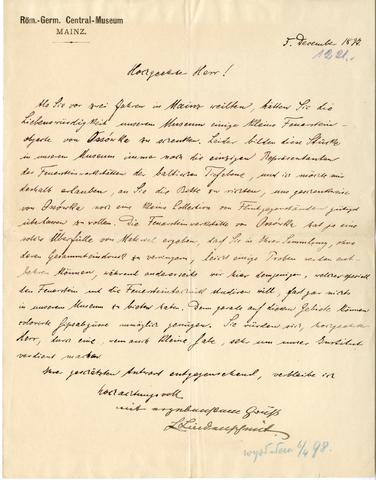 Röm.-Germ. Central-Museum
MAINZ.
5. Dezember 1897.
1221.
Hochgeehrter Herr!
Als Sie vor zwei Jahren in Mainz weilten, hatten Sie die
Liebenswürdigkeit unserem Museum einige kleine Feuerstein-
objecte von Ossówka zu schenken. Leider bilden diese Stücke
in unserem Museum immer noch die einzigen Repräsentanten
der Feuersteinwerkstätten der baltischen und ich möchte mir
deshalb erlauben, an Sie die Bitte zu richten, uns
von Ossówka noch eine kleine Collection von gütigst
überlassen zu wollen. Die Feuersteinwerkstätte von Ossówka hat ja eine
solche Überfülle von Material ergeben, daß Sie in Ihrer Sammlung, ohne
deren zu verringern, leicht einige Proben werden ent-
behren können, während andererseits wir hier demjenigen, welcher speciell
den Feuerstein und die Feuersteintechnik studieren will, fast gar nichts
in unserem Museum zu bieten haben. Denn gerade auf diesem Gebiete können
colorirte Gipsabgüsse unmöglich genügen. Sie würden sich, hochgeehrter
Herr, durch eine, wenn auch kleine Gabe, sehr um unser Institut
verdient machen.
Ihrer geschätzten Antwort entgegensehend, verbleibe ich
hochachtungsvoll
mit ergebenstem Gruß
L. Lindenschmit.
4/4 98.